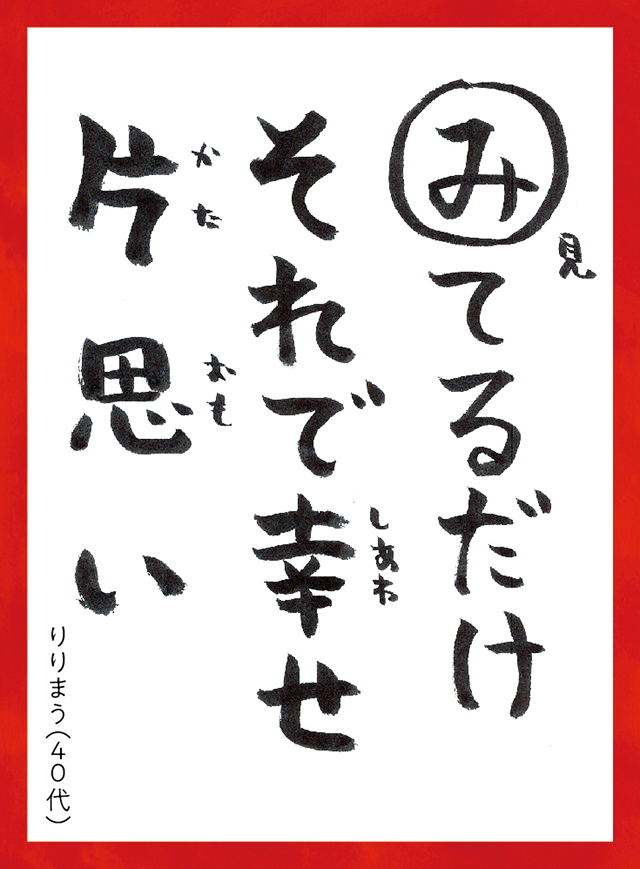 みてるだけ
見
それで幸せ
しあわ
片思い
かた
おも
りりまう(40代)